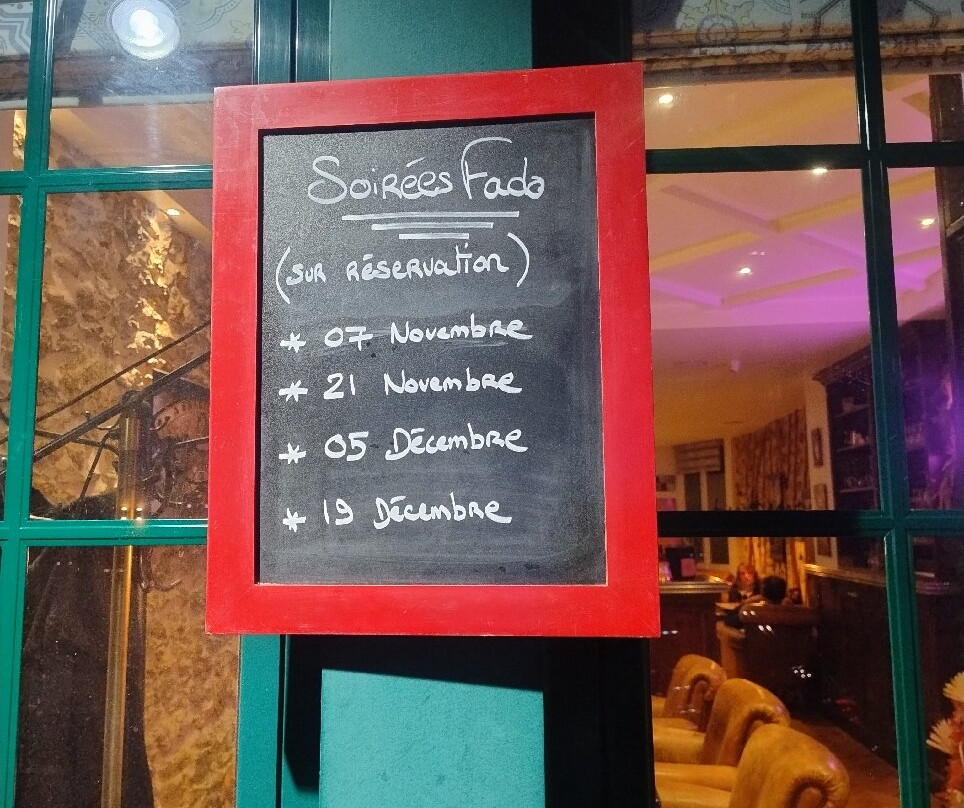 Soirées Fado
(sur réservation)
* 07 Novembre
* 21 Novembre
* 05 Décembre
* 19 Décembre